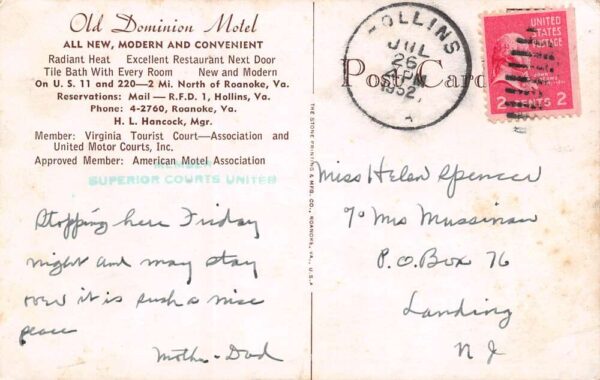 Old Dominion Motel
ALL NEW, MODERN AND CONVENIENT
Radiant Heat Excellent Restaurant Next Door
Tile Bath With Every Room New and Modern
On U. S. 11 and 220—2 Mi. North of Roanoke, Va.
Reservations: Mail — R.F.D. 1, Hollins, Va.
Phone: 4-2760, Roanoke, Va.
H. L. Hancock, Mgr.
Member: Virginia Tourist Court—Association and
United Motor Courts, Inc.
Approved Member: American Motel Association
MEMBER
SUPERIOR COURTS UNITED
Stopping here Friday
night and may stay
over it is such a nice
peace
Mother-Dad
THE STONE PRINTING & MFG. CO., ROANOKE, VA., U.S.A.
Post Card
HOLLINS
JUL
26
PM
1952
UNITED
STATES
POSTAGE
2 CENTS 2
Miss Helen Spencer
% Mrs Mussinan
P.O. Box 76
Landing
N J